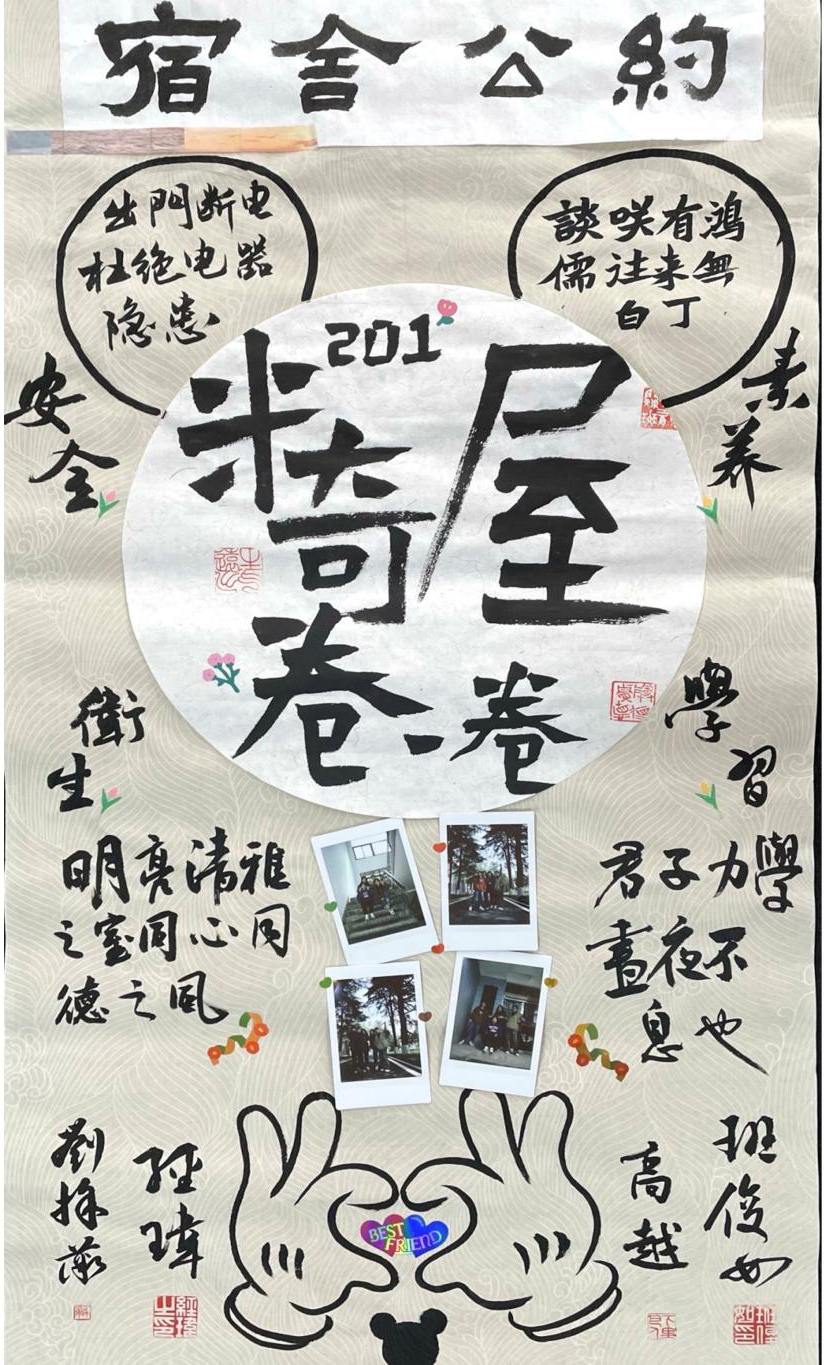 宿舍公約
出門断电
杜绝电器
隐患
談咲有鴻
儒往来無
白丁
安全
素养
201
米奇屋
卷-卷
衛生
學習
明亮清雅
之室同心同
德之风
君子力學
晝夜不
息也
BEST
FRIEND
經瑋
高越
班俊如